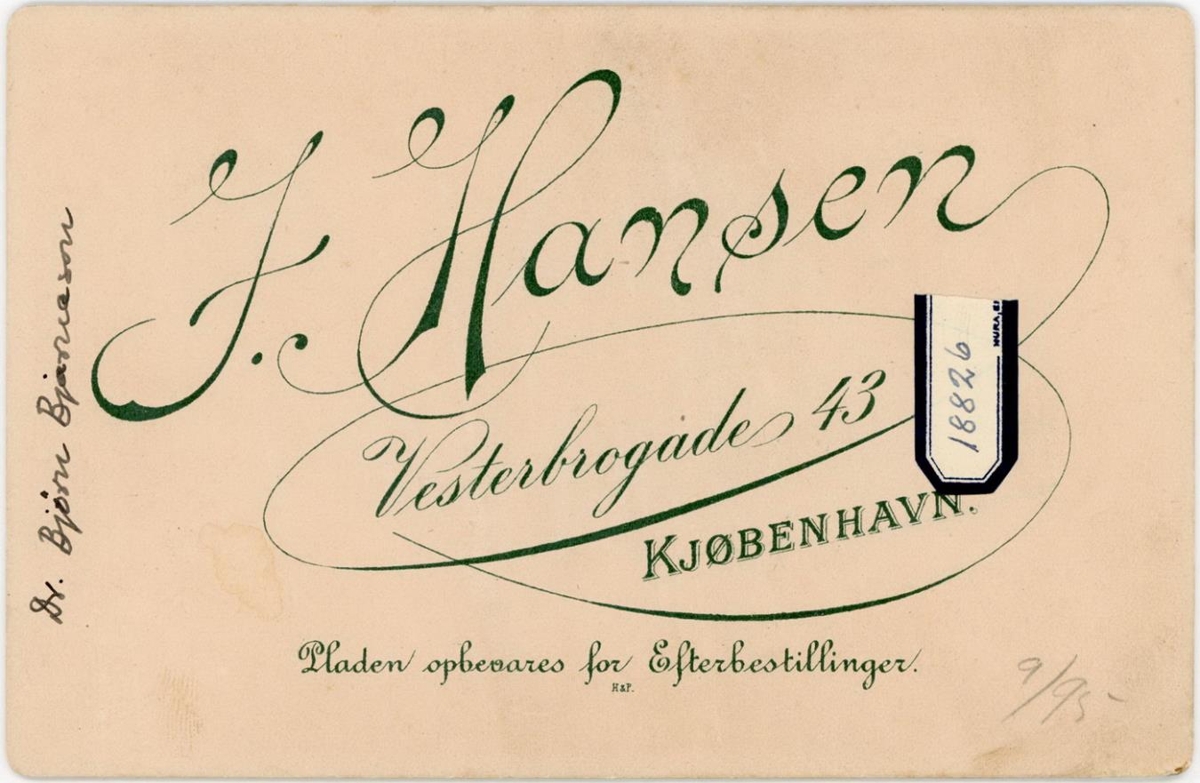 J. Hansen
Vesterbrogade 43
KJØBENHAVN.
Pladen opbevares for Efterbestillinger.
H&P.
Dr. Björn Bjarnason
18826
9/95-